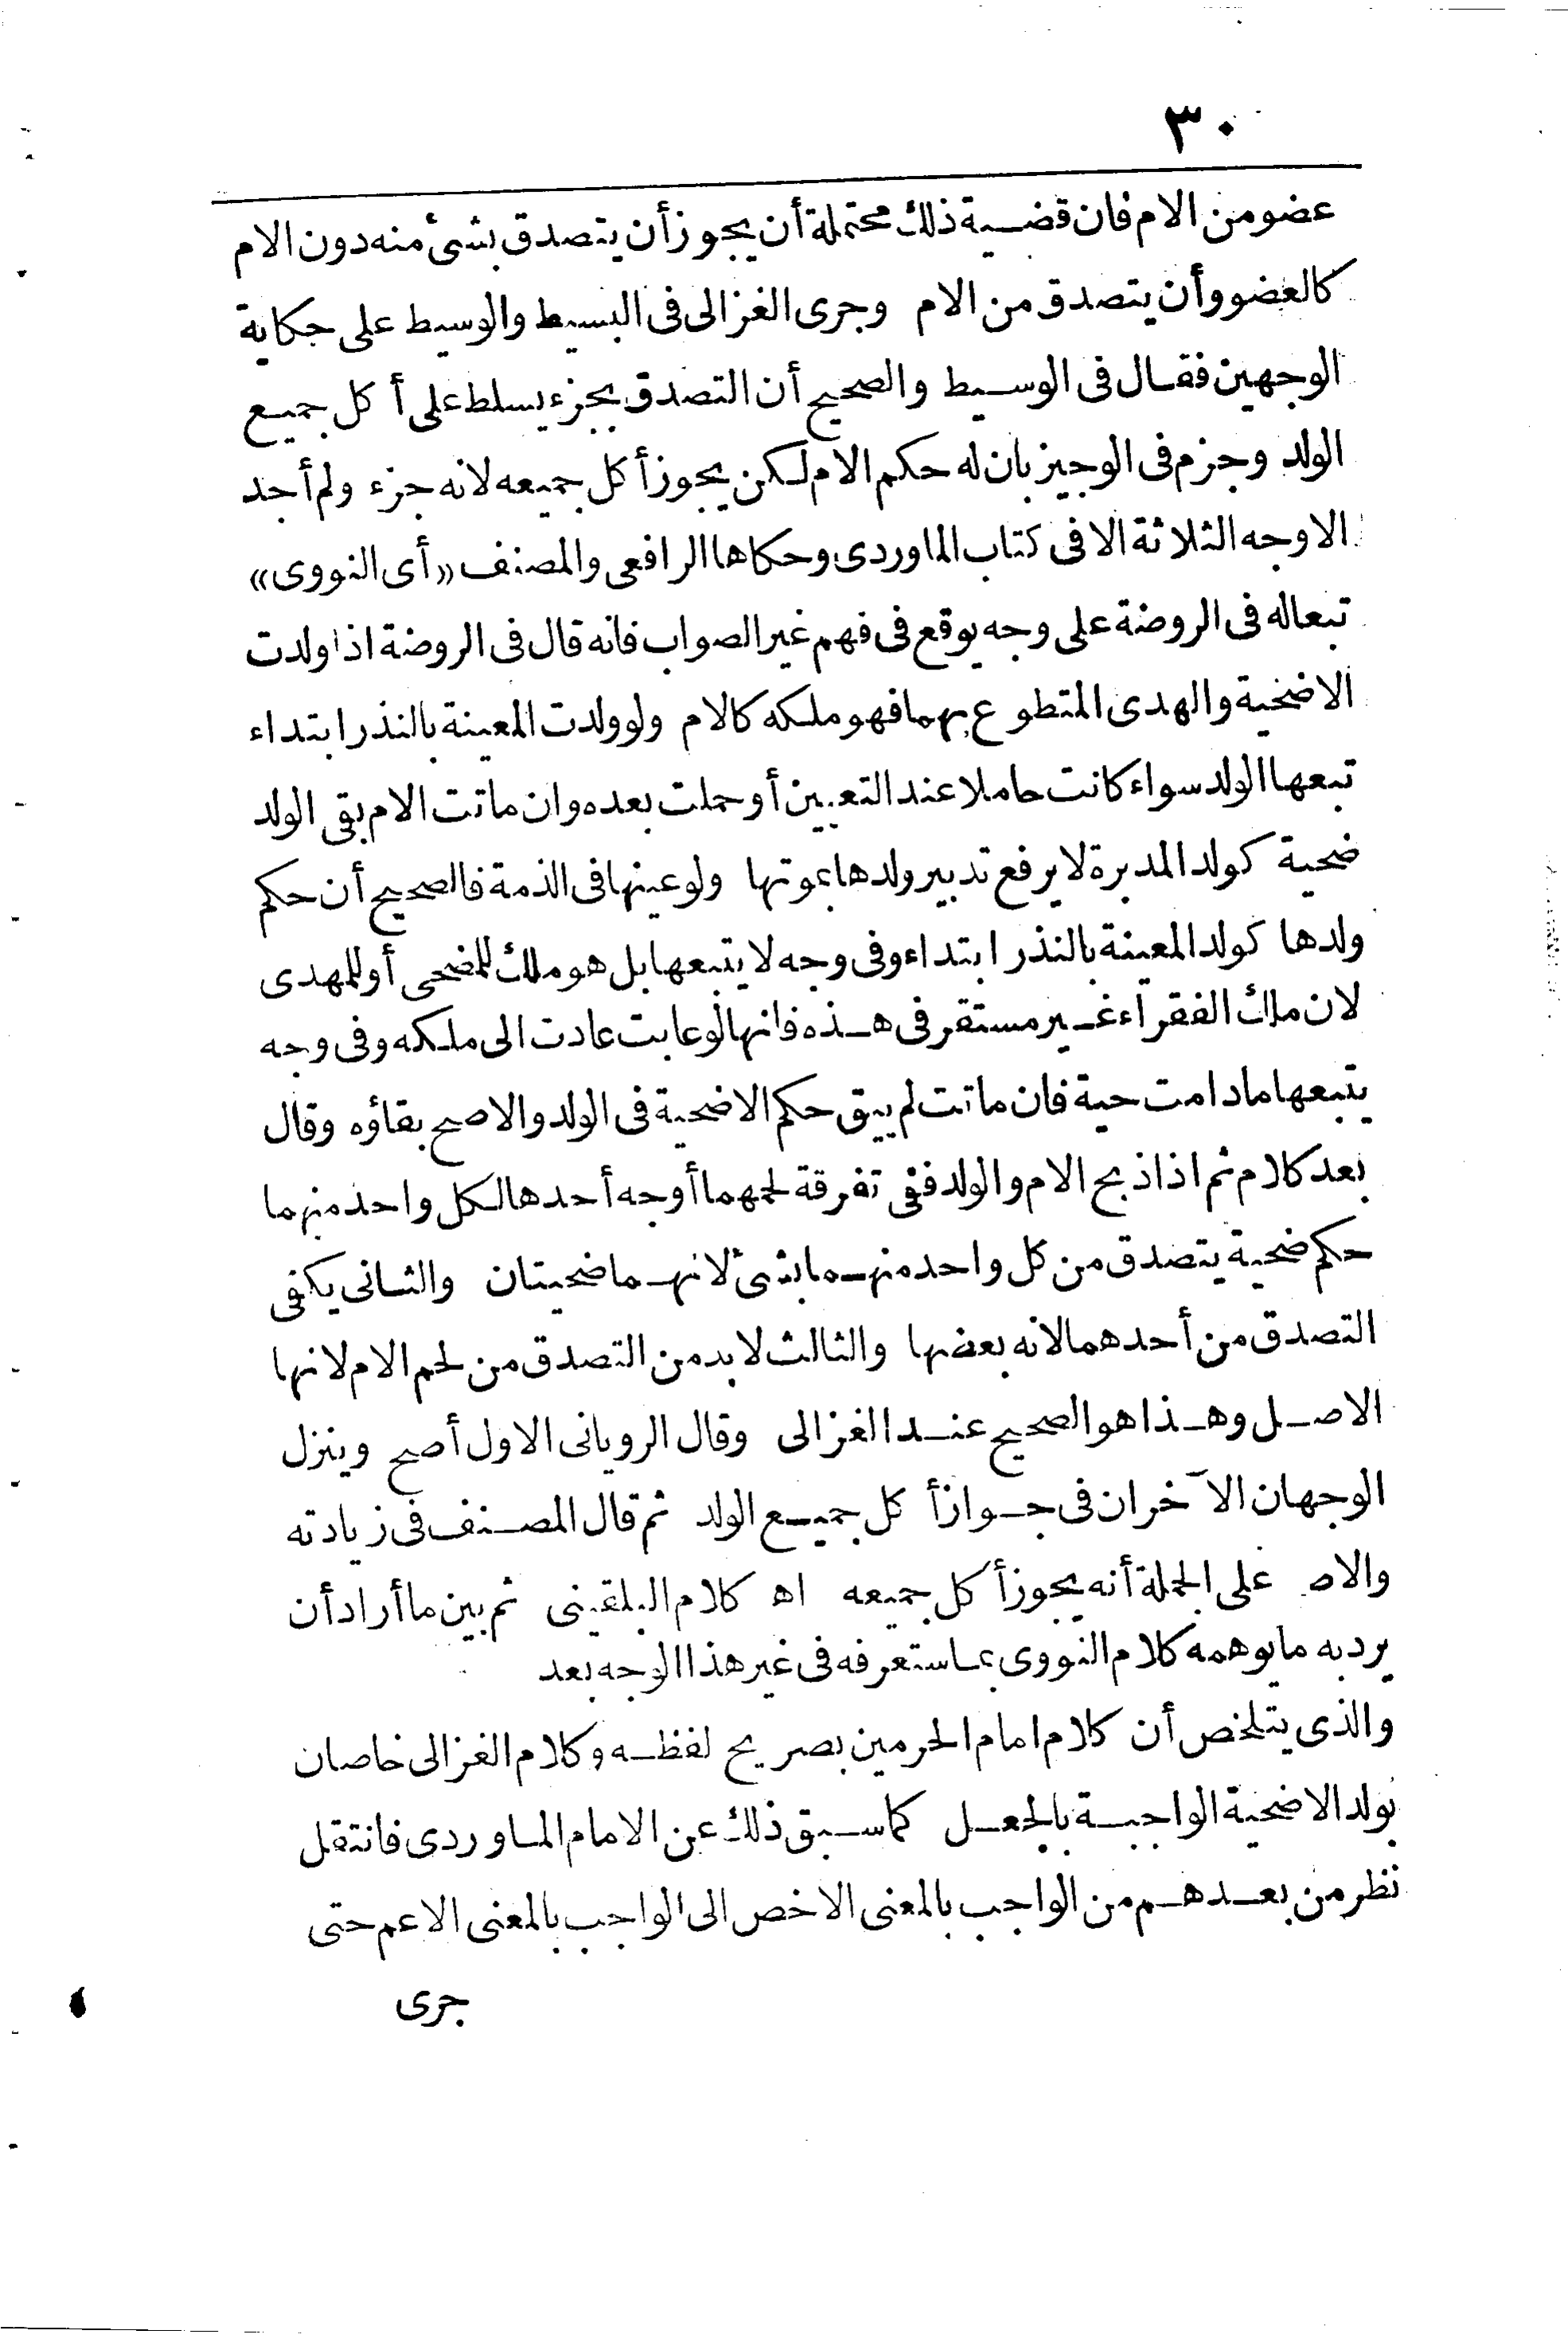 ٣٠
عضو من الام فان قضية ذلك محتملة أن يجوز أن يتصدق بشئ منه دون الام
كالعضو وأن يتصدق من الام وجرى الغزالى فى البسيط والوسيط على حكاية
الوجهين فقال فى الوسيط والصحيح أن التصدق بجزء يسلط على أكل جميع
الولد وجزم فى الوجيز بان له حكم الام لكن يجوز أكل جميعه لانه جزء ولم أجد
الاوجه الثلاثة الا فى كتاب الماوردى وحكاها الرافعى والمصنف «أى النووى»
تبعا له فى الروضة على وجه يوقع فى فهم غير الصواب فانه قال فى الروضة اذا ولدت
الاضحية والهدى المتطوع بهما فهو ملكه كالام ولو ولدت المعينة بالنذر ابتداء
تبعها الولد سواء كانت حاملا عند التعيين أو حملت بعده وان ماتت الام بقى الولد
ضحية كولد المدبرة لا يرفع تدبير ولدها بموتها ولو عينها فى الذمة فالصحيح أن حكم
ولدها كولد المعينة بالنذر ابتداء وفى وجه لا يتبعها بل هو ملك للمضحى أو للمهدى
لان ملك الفقراء غير مستقر فى هذه فانها لو عابت عادت الى ملكه وفى وجه
يتبعها ما دامت حية فان ماتت لم يبق حكم الاضحية فى الولد والاصح بقاؤه وقال
بعد كلام ثم اذا ذبح الام والولد ففى تفرقة لحمهما أوجه أحدها لكل واحد منهما
حكم ضحية يتصدق من كل واحد منهما بشئ لانهما ضحيتان والثانى يكفى
التصدق من أحدهما لانه بعضها والثالث لا بد من التصدق من لحم الام لانها
الاصل وهذا هو الصحيح عند الغزالى وقال الرويانى الاول أصح وينزل
الوجهان الآخران فى جواز أكل جميع الولد ثم قال المصنف فى زيادته
والاص على الجملة أنه يجوز أكل جميعه اه كلام البلقينى ثم بين ما أراد أن
يرد به ما يوهمه كلام النووى بما ستعرفه فى غير هذا الوجه بعد
والذى يتلخص أن كلام امام الحرمين بصريح لفظه وكلام الغزالى خاصان
بولد الاضحية الواجبة بالجعل كما سبق ذلك عن الامام الماوردى فانتقل
نظر من بعدهم من الواجب بالمعنى الاخص الى الواجب بالمعنى الاعم حتى
جرى